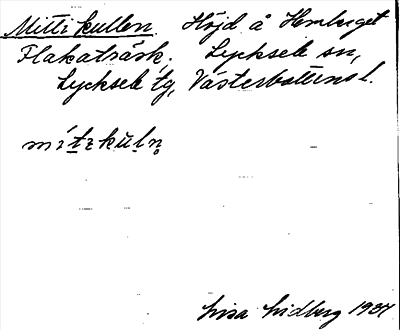 Mitti kullen Höjd å Hemberget
Flakaträsk. Lycksele sn,
Lycksele tg, Västerbottens l.
mítikùln̥
Lisa Lidberg 1937